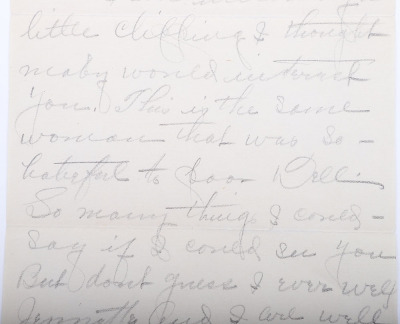 little clipping I thought
maby would interest
you. This is the same
woman that was so -
hateful to poor Dell.
So many things I could -
say if I could see you
But dont guess I ever well
Jennette and I are well